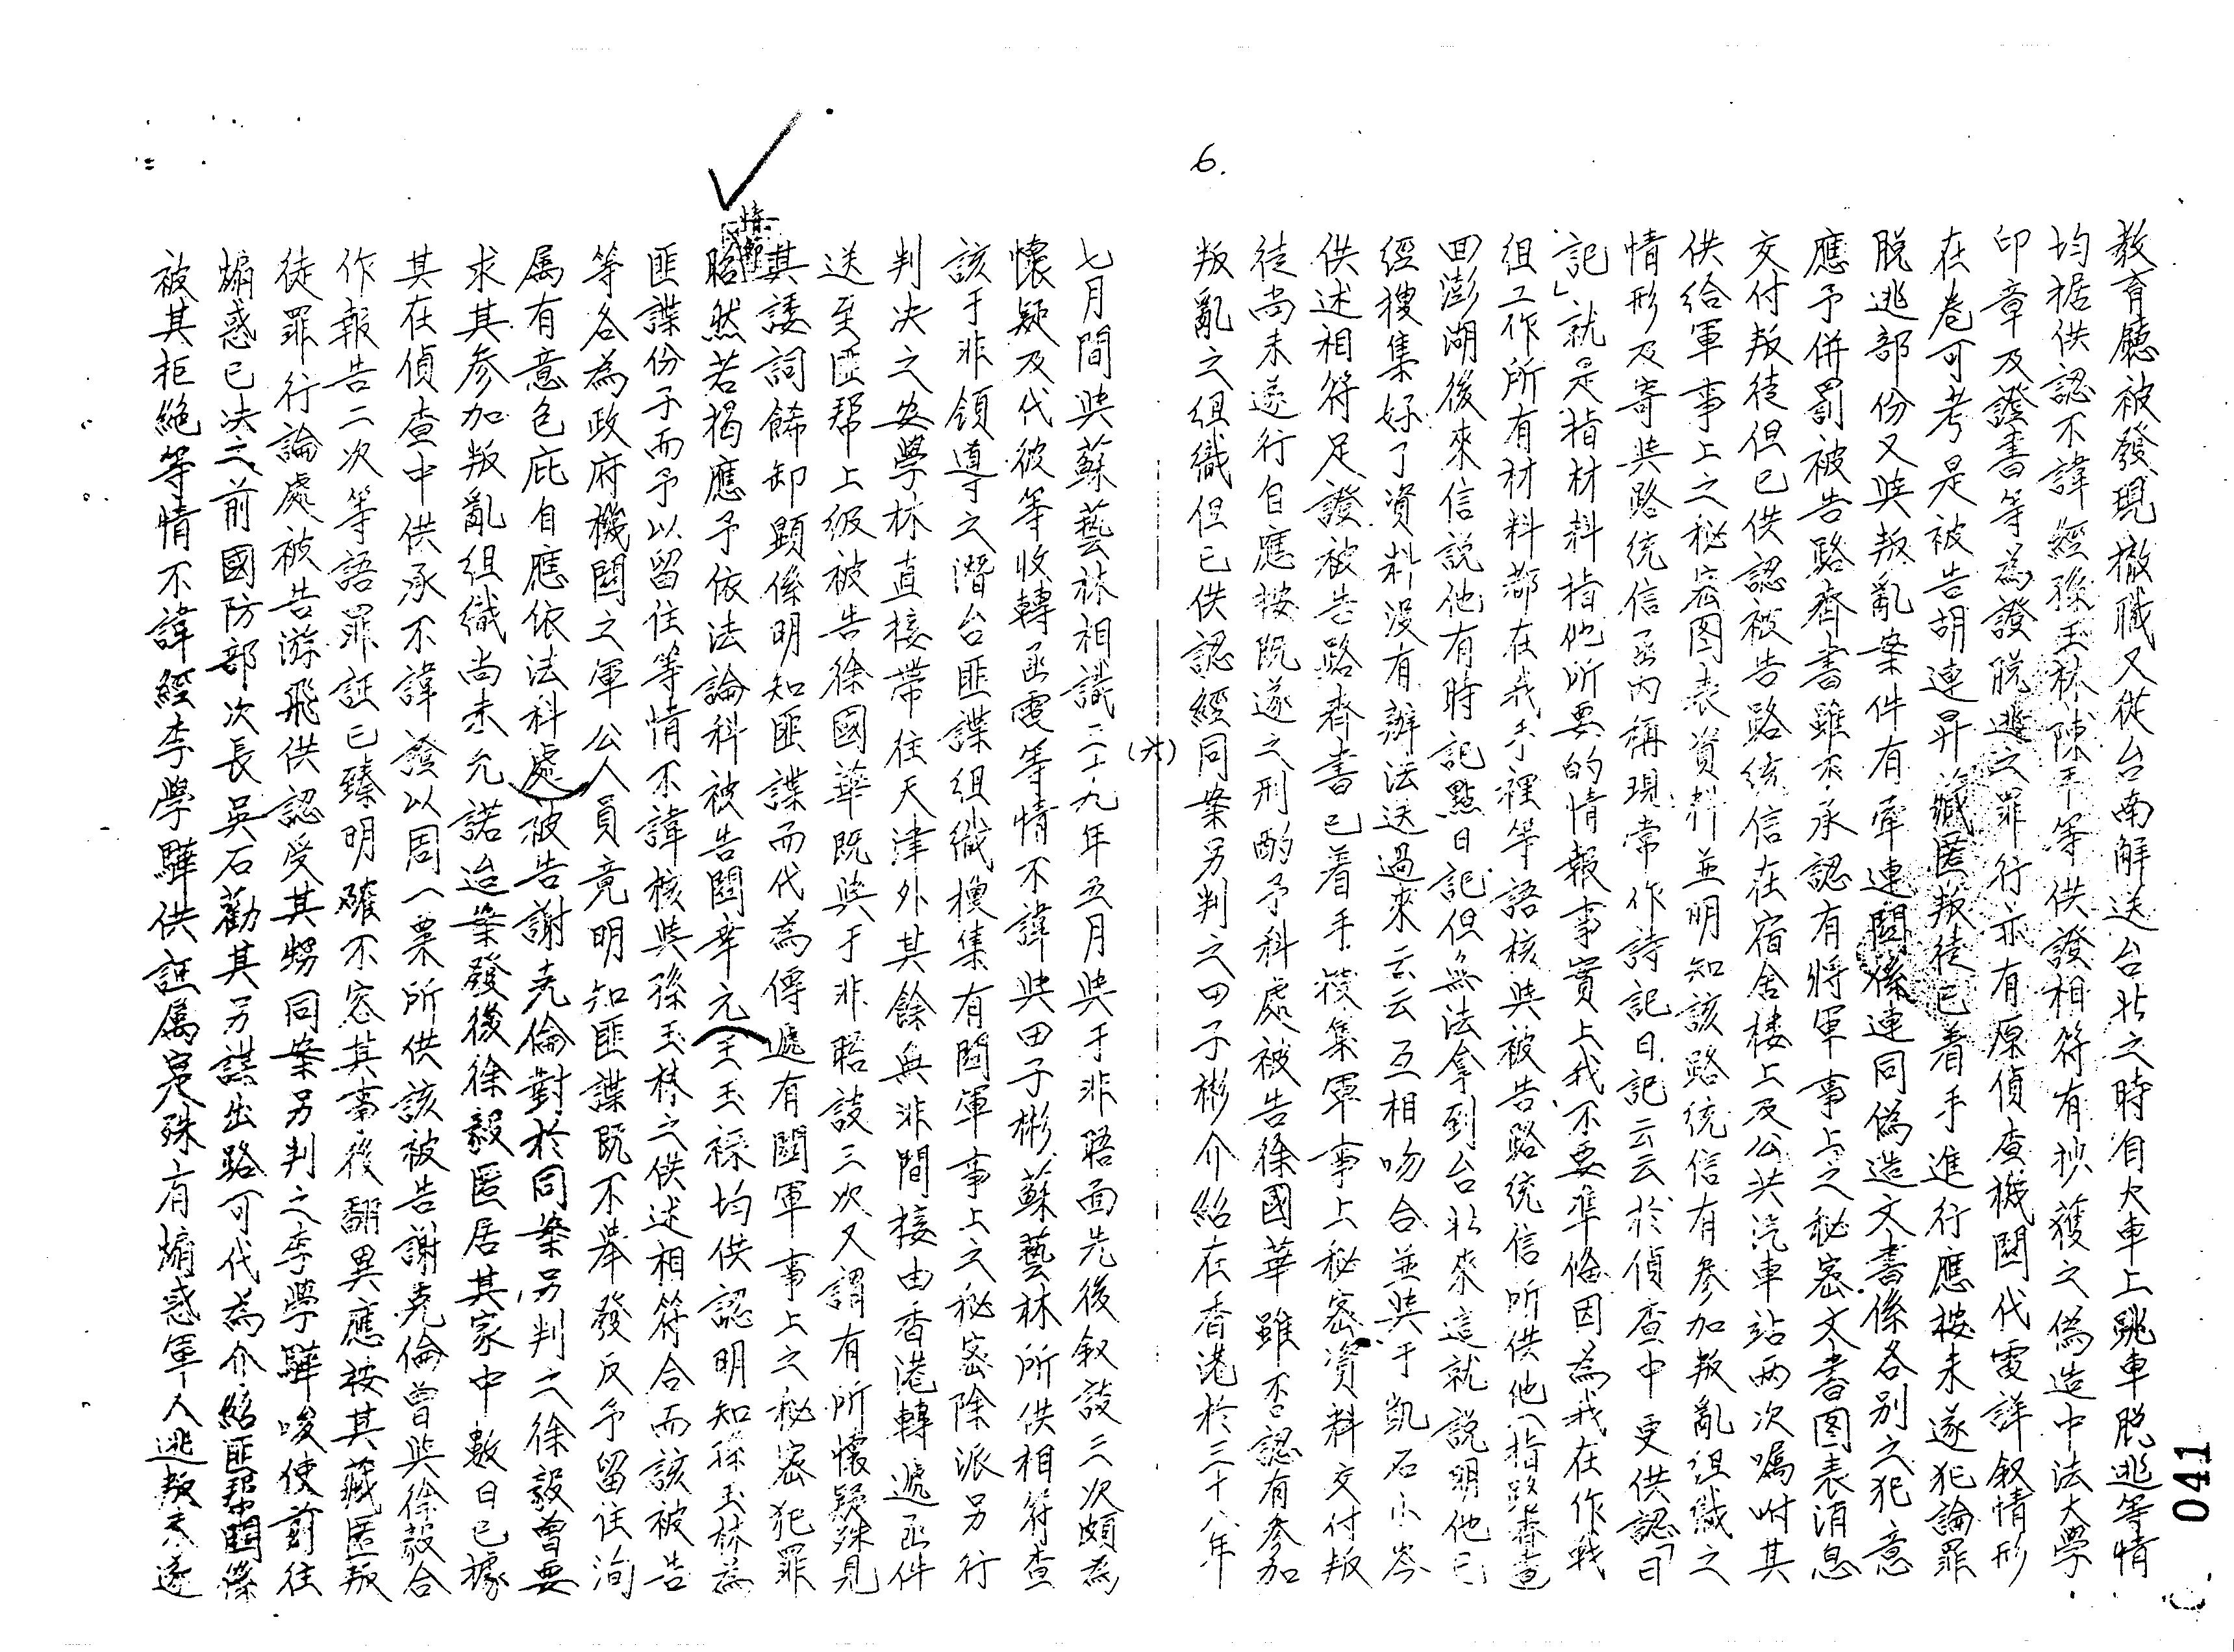 教育廳被發現撤職又從台南解送台北之時自火車上跳車脫逃等情
均据供認不諱經孫玉林陳平等供證相符有抄獲之偽造中法大學
印章及證書等為證脫逃之罪行亦有原偵查機關代電詳叙情形
在卷可考是被告胡連昇藏匿叛徒已着手進行應按未遂犯論罪
脫逃部份又與叛亂案件有牽連關係連同偽造文書係各別之犯意
應予併罰被告路齊書雖不承認有將軍事上之秘密文書图表消息
交付叛徒但已供認被告路統信在宿舍楼上及公共汽車站两次囑咐其
供給軍事上之秘密图表資料並明知該路統信有参加叛亂组織之
情形及寄與路統信函內稱現常作詩記日記云云於偵查中更供認「日
記」就是指材料指他所要的情報事實上我不要準備因為我在作戰
组工作所有材料都在我手裡等語核與被告路統信所供他(指路齊書
回澎湖後來信説他有時記點日記但無法拿到台北來這就説明他已
經搜集好了資料没有辦法送過來云云互相吻合並與于凱石小岑
供述相符足證被告路齊書已着手搜集軍事上秘密資料交付叛
徒尚未遂行自應按既遂之刑酌予科處被告徐國華雖否認有参加
叛亂之组織但已供認經同案另判之田子彬介紹在香港於三十八年
6.
(六)
七月間與蘇藝林相識三十九年五月與于非晤面先後叙談二次頗為
懷疑及代彼等收轉函電等情不諱與田子彬蘇藝林所供相符查
該于非領導之潛台匪諜组織搜集有關軍事上之秘密除派另行
判决之安學林直接帶往天津外其餘無非間接由香港轉遞函件
送至匪帮上级被告徐國華既與于非晤談三次又謂有所懷疑殊見
其諉詞餙卸顕係明知匪諜而代為傳遞有關軍事上之秘密犯罪
情節
昭然若揭應予依法論科被告關幸元王玉禄均供認明知孫玉林為
匪諜份子而予以留住等情不諱核與孫玉林之供述相符合而該被告
等各為政府機關之軍公人員竟明知匪諜既不舉發反予留住洵
属有意包庇自應依法科處被告謝克倫對於同案另判之徐毅曾要
求其参加叛亂组織尚未允諾迨案發後徐毅匿居其家中數日已據
其在偵查中供承不諱證以周一粟所供該被告謝克倫曾與徐毅合
作報告二次等語罪証已臻明確不容其事後翻異應按其藏匿叛
徒罪行論處被告游飛供認受其甥同案另判之李學驊唆使前往
煽惑已决之前國防部次長吳石勸其另謀出路可代為介紹匪帮關係
被其拒絶等情不諱經李學驊供証属實殊有煽惑軍人逃叛未遂
041